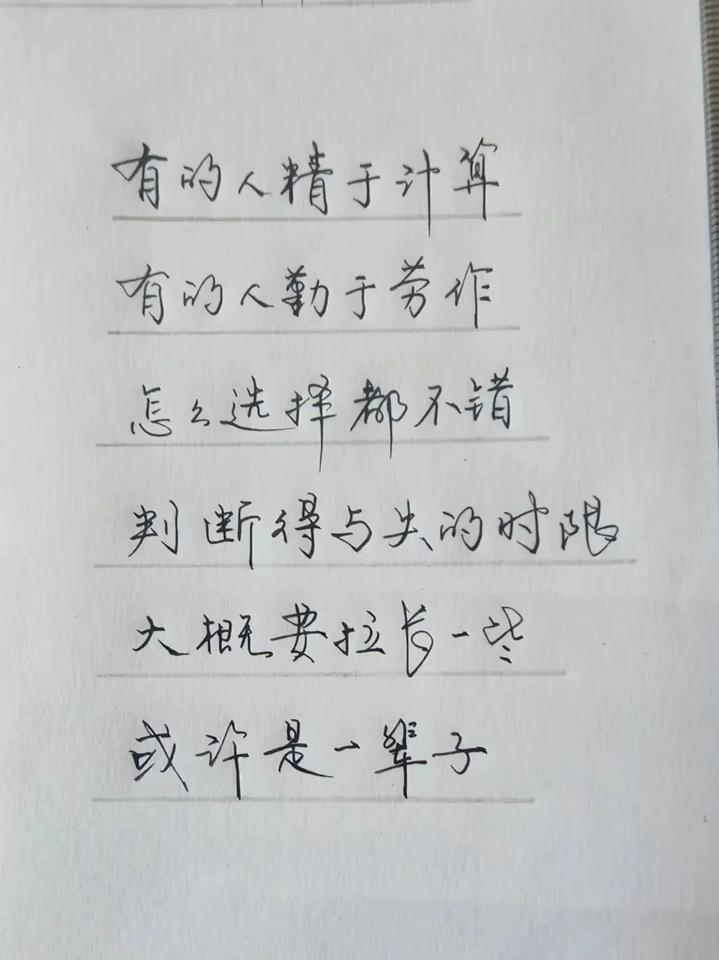 有的人精于计算
有的人勤于劳作
怎么选择都不错
判断得与失的时限
大概要拉长一些
或许是一辈子